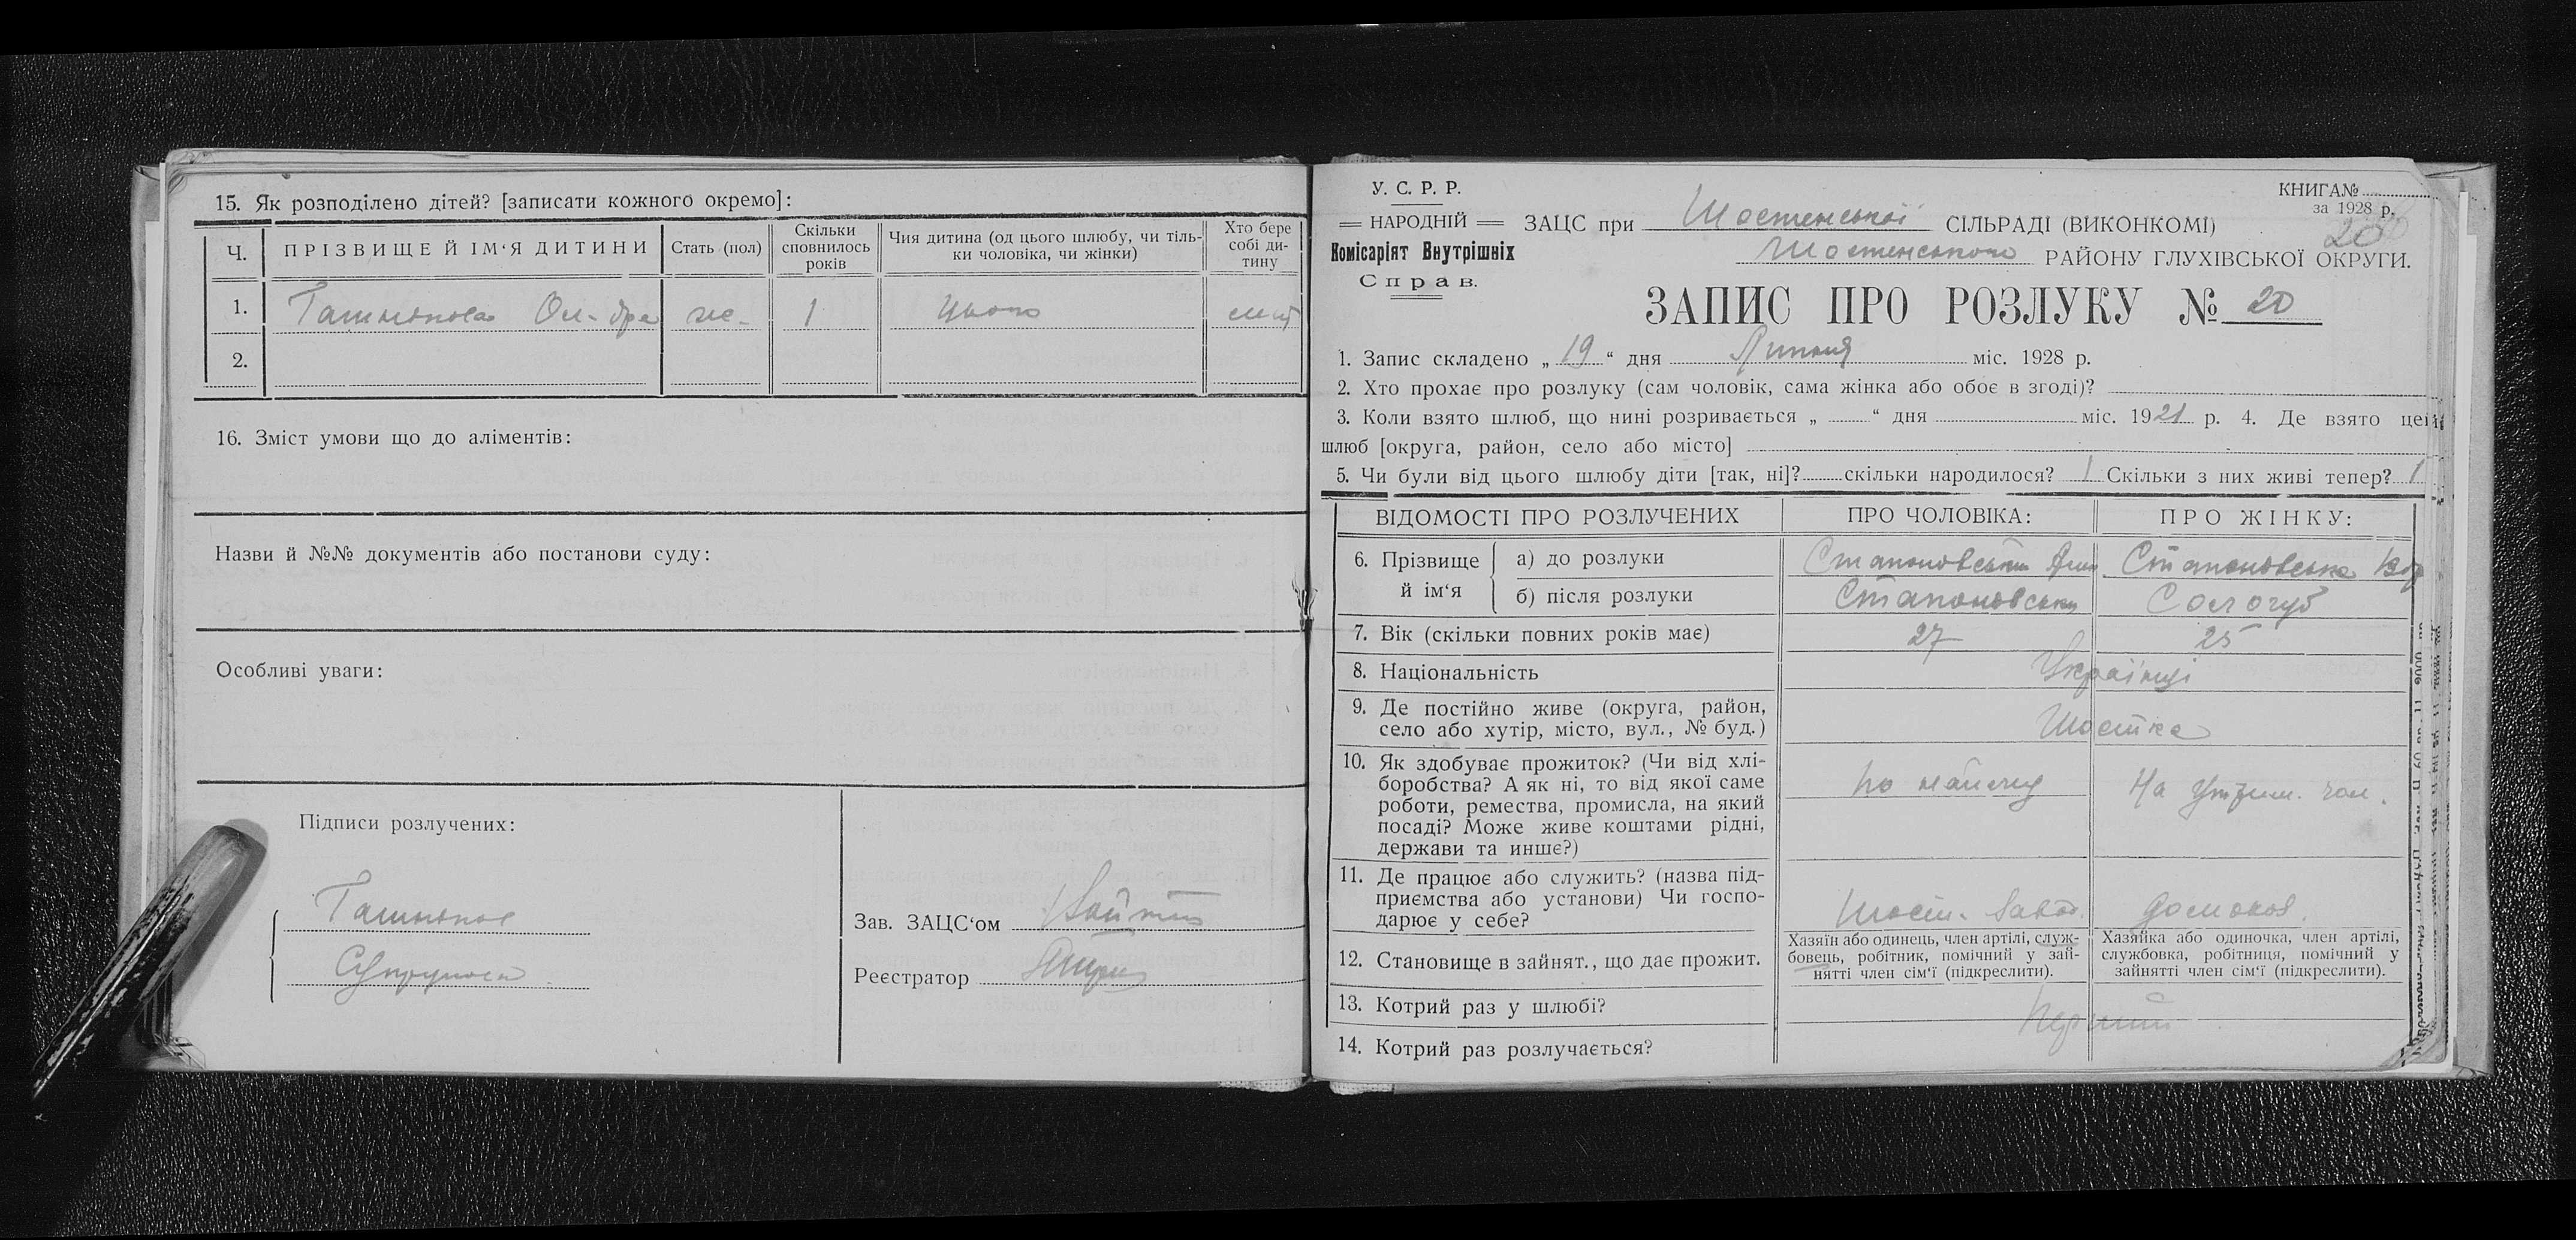 15. Як розподілено дітей? [записати кожного окремо]:
Ч.
ПРІЗВИЩЕ Й ІМ‘Я ДИТИНИ
Стать (пол)
Скільки
сповнилось
років
Чия дитина (од цього шлюбу, чи тіль-
ки чоловіка, чи жінки)
Хто бере
собі ди-
тину
1.
1
цього
2.
16. Зміст умови що до аліментів:
Назви й №№ документів або постанови суду:
Особливі уваги:
Підписи розлучених:
Зав. ЗАЦС‘ом
Реєстратор
У. С. Р. Р.
НАРОДНІЙ
Комісаріят Внутрішніх
Справ.
КНИГА№
за 1928 р.
20
ЗАЦС при Шостенської СІЛЬРАДІ (ВИКОНКОМІ)
Шостенського РАЙОНУ ГЛУХІВСЬКОЇ ОКРУГИ.
ЗАПИС ПРО РОЗЛУКУ № 20
1. Запис складено „ 19 “ дня Липня міс. 1928 р.
2. Хто прохає про розлуку (сам чоловік, сама жінка або обоє в згоді)?
3. Коли взято шлюб, що нині розривається „ “ дня міс. 1921 р. 4. Де взято цей
шлюб [округа, район, село або місто]
5. Чи були від цього шлюбу діти [так, ні]? скільки народилося? 1 Скільки з них живі тепер? 1
ВІДОМОСТІ ПРО РОЗЛУЧЕНИХ
ПРО ЧОЛОВІКА:
ПРО ЖІНКУ:
6. Прізвище
й ім‘я
а) до розлуки
б) після розлуки
Сологуб
7. Вік (скільки повних років має)
27
25
8. Національність
Українці
9. Де постійно живе (округа, район,
село або хутір, місто, вул., № буд.)
Шостка
10. Як здобуває прожиток? (Чи від хлі-
боробства? А як ні, то від якої саме
роботи, ремества, промисла, на який
посаді? Може живе коштами рідні,
держави та инше?)
по найму
На утрим. чол.
11. Де працює або служить? (назва під-
приємства або установи) Чи госпо-
дарює у себе?
Шост. Завод.
домогов.
12. Становище в зайнят., що дає прожит.
Хазяїн або одинець, член артілі, служ-
бовець, робітник, помічний у зай-
нятті член сім‘ї (підкреслити).
Хазяйка або одиночка, член артілі,
службовка, робітниця, помічний у
зайнятті член сім‘ї (підкреслити).
13. Котрий раз у шлюбі?
Перший
14. Котрий раз розлучається?